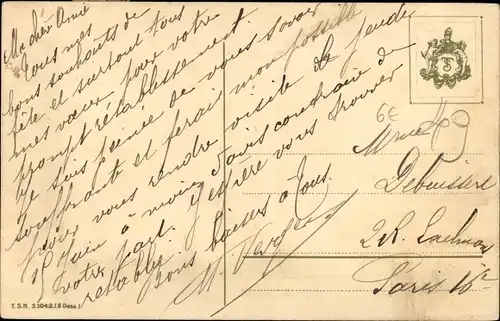 Ma chère Amie
Tous mes
bons souhaits de
fête et surtout tous
mes vœux pour votre
prompt rétablissement.
Je suis peinée de vous savoir
souffrante et ferai mon possible
pour vous rendre visite le jeudi
Juin à moins d'avis contraire de
votre part. J'espère vous trouver
rétablie.
Bons baisers à tous.
M.
6E
Mme
Debuissert
2 R.
Paris 16e
TS
T.S.N. S.1042 (6 Dess.)